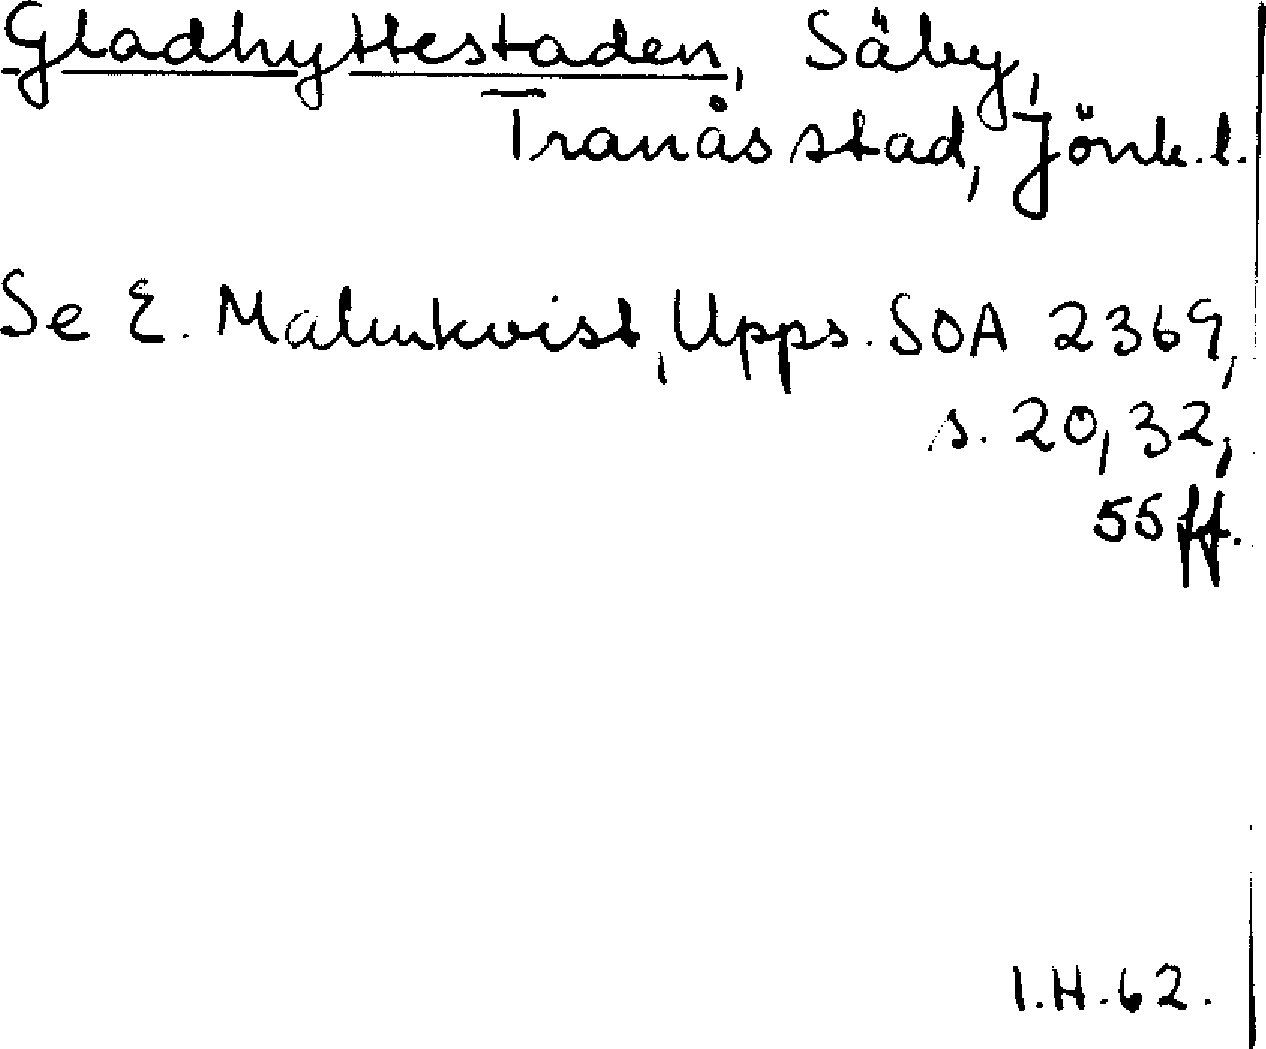 Gladhyttestaden, Säby,
Tranås stad, Jönk. l.
Se E. Malmkvist, Upps. SOA 2369,
s. 20, 32,
55 ff.
I.H. 62.